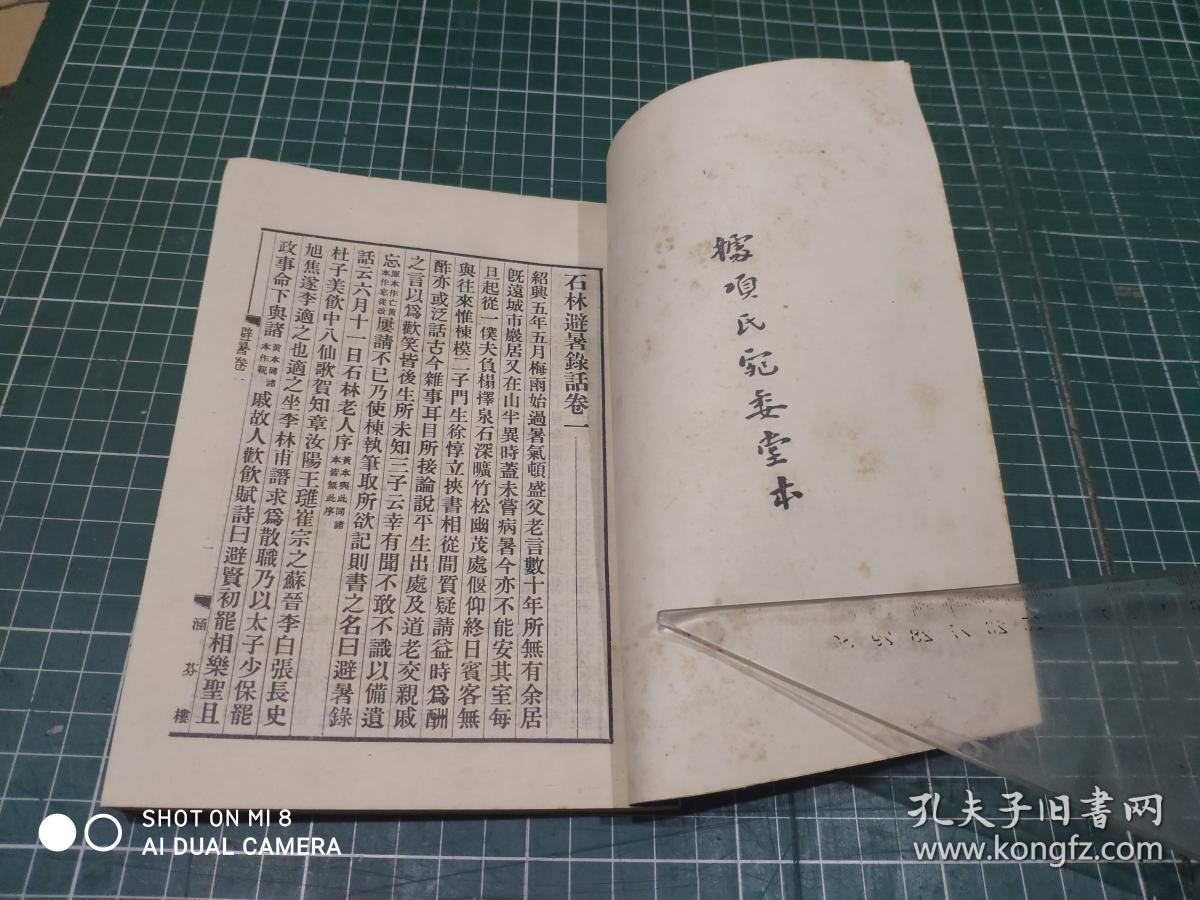 據項氏宛委堂本
石林避暑錄話卷一
紹興五年五月梅雨始過暑氣頓盛父老言數十年所無有余居
旣遠城市巖居又在山半異時蓋未嘗病暑今亦不能安其室每
旦起從一僕夫負榻擇泉石深曠竹松幽茂處偃仰終日賓客無
與往來惟棟模二子門生徐惇立挾書相從間質疑請益時爲酬
酢亦或泛話古今雜事耳目所接論說平生出處及道老交親戚
之言以爲歡笑皆後生所未知三子云幸有聞不敢不識以備遺
忘原本作亡黃本作忘從改屢請不已乃使棟執筆取所欲記則書之名曰避暑錄
話云六月十一日石林老人序黃本與此同諸本皆無此序
杜子美飲中八仙歌賀知章汝陽王璡崔宗之蘇晉李白張長史
旭焦遂李適之也適之坐李林甫譖求爲散職乃以太子少保罷
政事命下與諸黃本同諸本作親戚故人歡飲賦詩曰避賢初罷相樂聖且
避暑卷一
一
涵芬樓
SHOT ON MI 8
AI DUAL CAMERA
孔夫子旧书网
www.kongfz.com